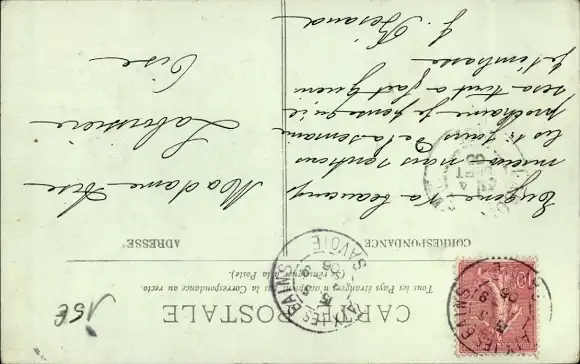 CARTE POSTALE
Tous les Pays étrangers n'acceptent pas la Correspondance au recto.
(Se renseigner à la Poste).
CORRESPONDANCE
ADRESSE
Eugène va beaucoup
mieux nous rentrons
les 15 jours de la semaine
prochaine je pense qu'il
sera tout a fait guéri
je t'embrasse
J. Béraud
Madame
Laboissière
Oise
AIX-LES-BAINS
SAVOIE
10
15€